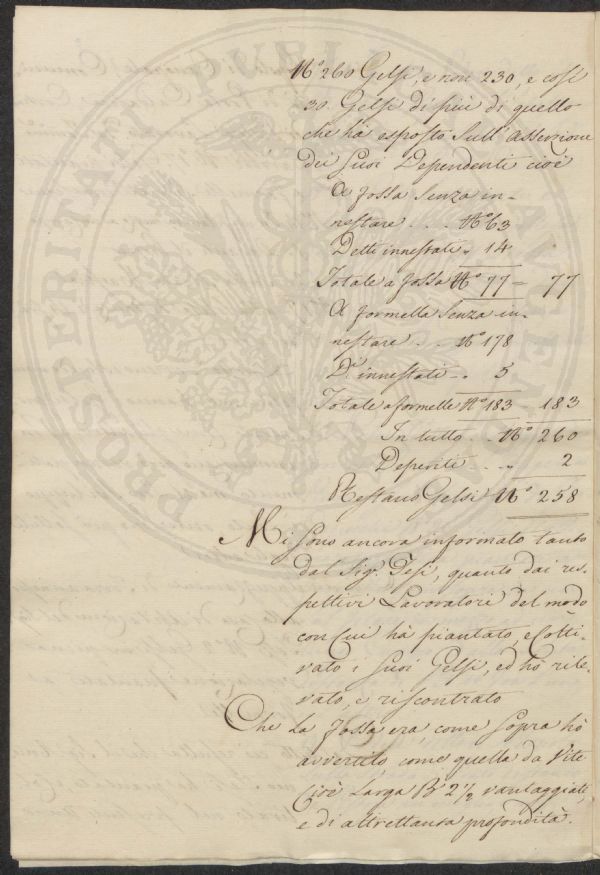 N.º 260 Gelsi, e non 230, e così
30. Gelsi di più di quello
che hà esposto sull'asserzione
dei suoi Dependenti cioè
A fossa senza in-
nestare . . . N.º 63
Detti innestati „ 14
Totale a fossa N.º 77 = 77
A formella senza in-
nestare . . N.º 178
D.i innestati . „ 5
Totale a formelle N.º 183 - 183
In tutto . . N.º 260
Deperiti . . . „ 2
Restano Gelsi N.º 258
Mi sono ancora informato tanto
dal Sig.r Tesi, quanto dai res-
pettivi Lavoratori del modo
con Cui hà piantato, e Colti-
vato i suoi Gelsi, ed hò rile-
vato, e riscontrato
Che La fossa era, come sopra hò
avvertito, come quella da Vite
Cioè Larga B.a 2½ vantaggiate,
e di altrettanta profondità.
PVBLICAE
PROSPERITATIS